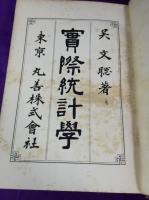 吳文聰著
實際統計學
東京 丸善株式會社